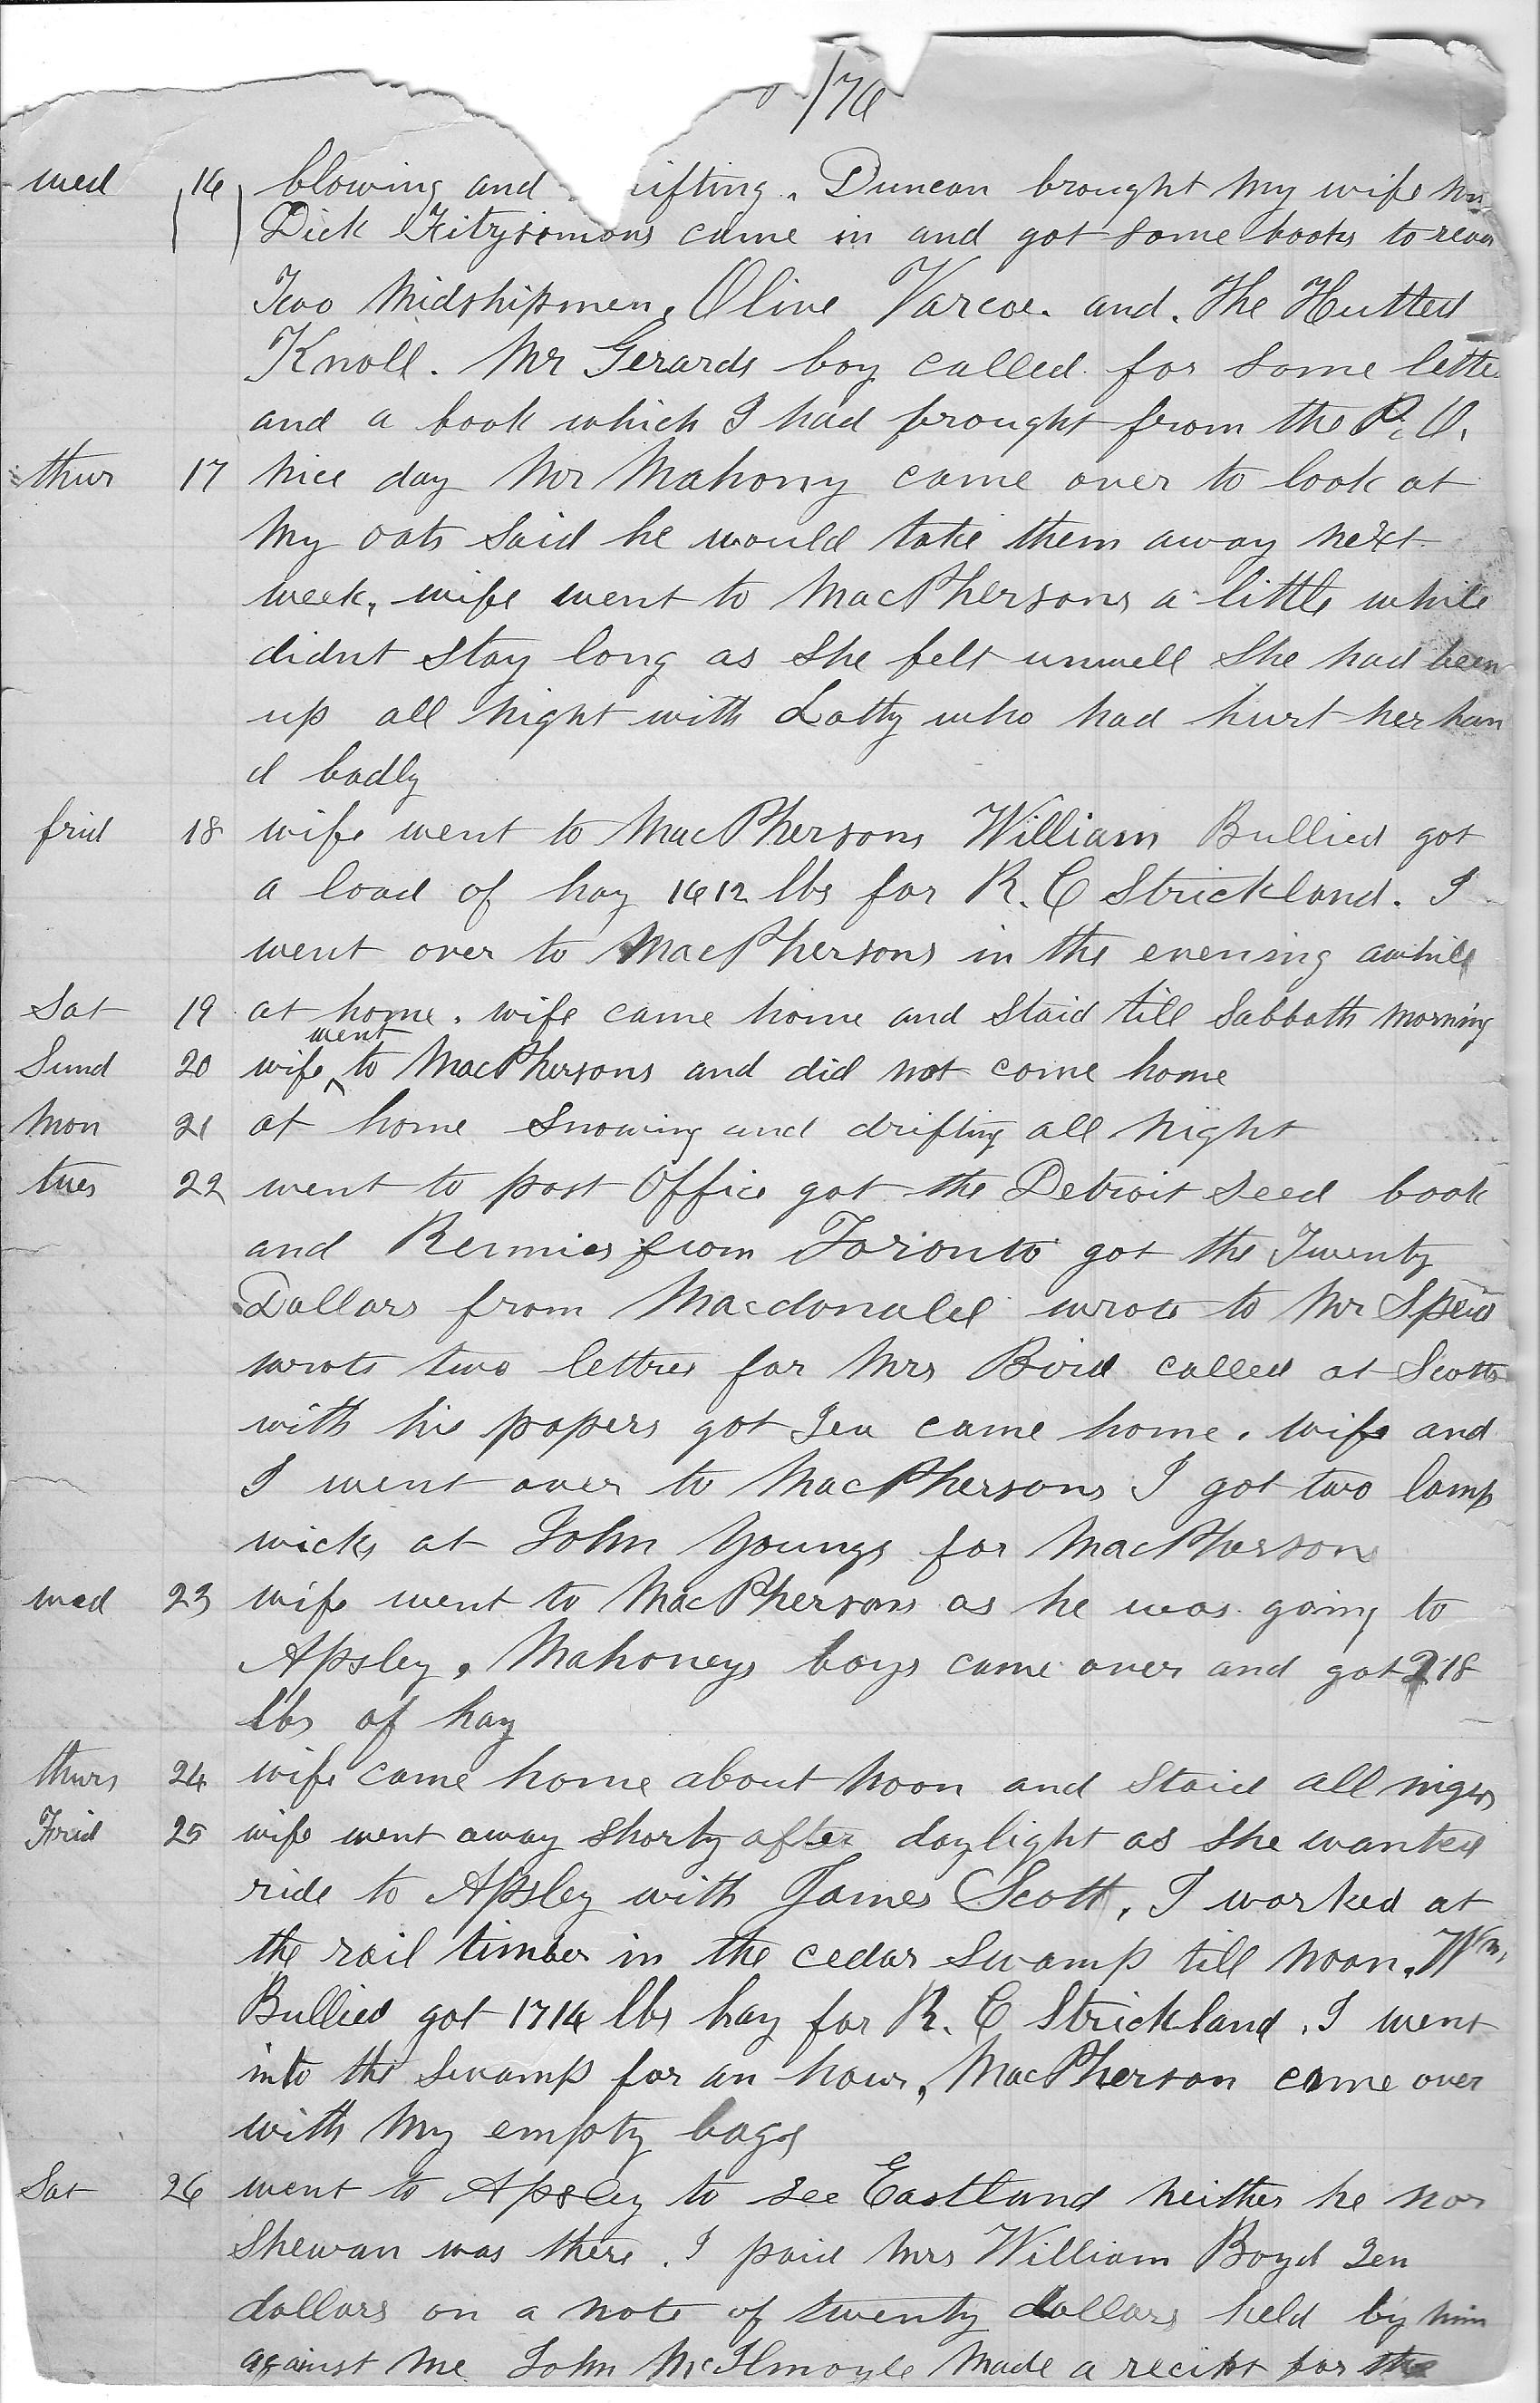 /76
wed 16 blowing and ifting. Duncan brought my wife
Dick Fitzsimons came in and got some books to read
Two Midshipmen, Olive Varcoe. and. The Hutted
Knoll. Mr Gerards boy called for some lette
and a book which I had brought from the P. O.
thur 17 nice day Mr Mahony came over to look at
my oats said he would take them away next
week, wife went to MacPhersons a little while
didnt stay long as she felt unwell she had been
up all night with Latty who had hurt her han
d badly
frid 18 wife went to MacPhersons William Bullied got
a load of hay 1612 lbs for R. C Strickland. I
went over to MacPhersons in the evening awhile
Sat 19 at home. wife came home and staid till Sabbath morning
went
Sund 20 wife ^ to MacPhersons and did not come home
Mon 21 at home snowing and drifting all night
tues 22 went to post Office got the Detroit seed book
and Rennies from Toronto got the Twenty
Dollars from Macdonald wrote to Mr
wrote two lettres for Mrs Bird called at Scotts
with his papers got Tea came home. wife and
I went over to MacPhersons I got two lamp
wicks at John Youngs for MacPherson
wed 23 wife went to MacPhersons as he was going to
Apsley. Mahoneys boys came over and got 218
lbs of hay
thurs 24 wife came home about noon and staid all night
Frid 25 wife went away shorty after daylight as she wanted
ride to Apsley with James Scott, I worked at
the rail timber in the cedar swamp till noon. Wm,
Bullied got 1714 lbs hay for R. C Strickland. I went
into the swamp for an hour, MacPherson came over
with my empty bags
Sat 26 went to Apsley to see Eastland neither he nor
Shewan was there. I paid Mrs William Boyd Ten
dollars on a note of twenty dollars held by him
against me John McIlmoyle made a recipt for the